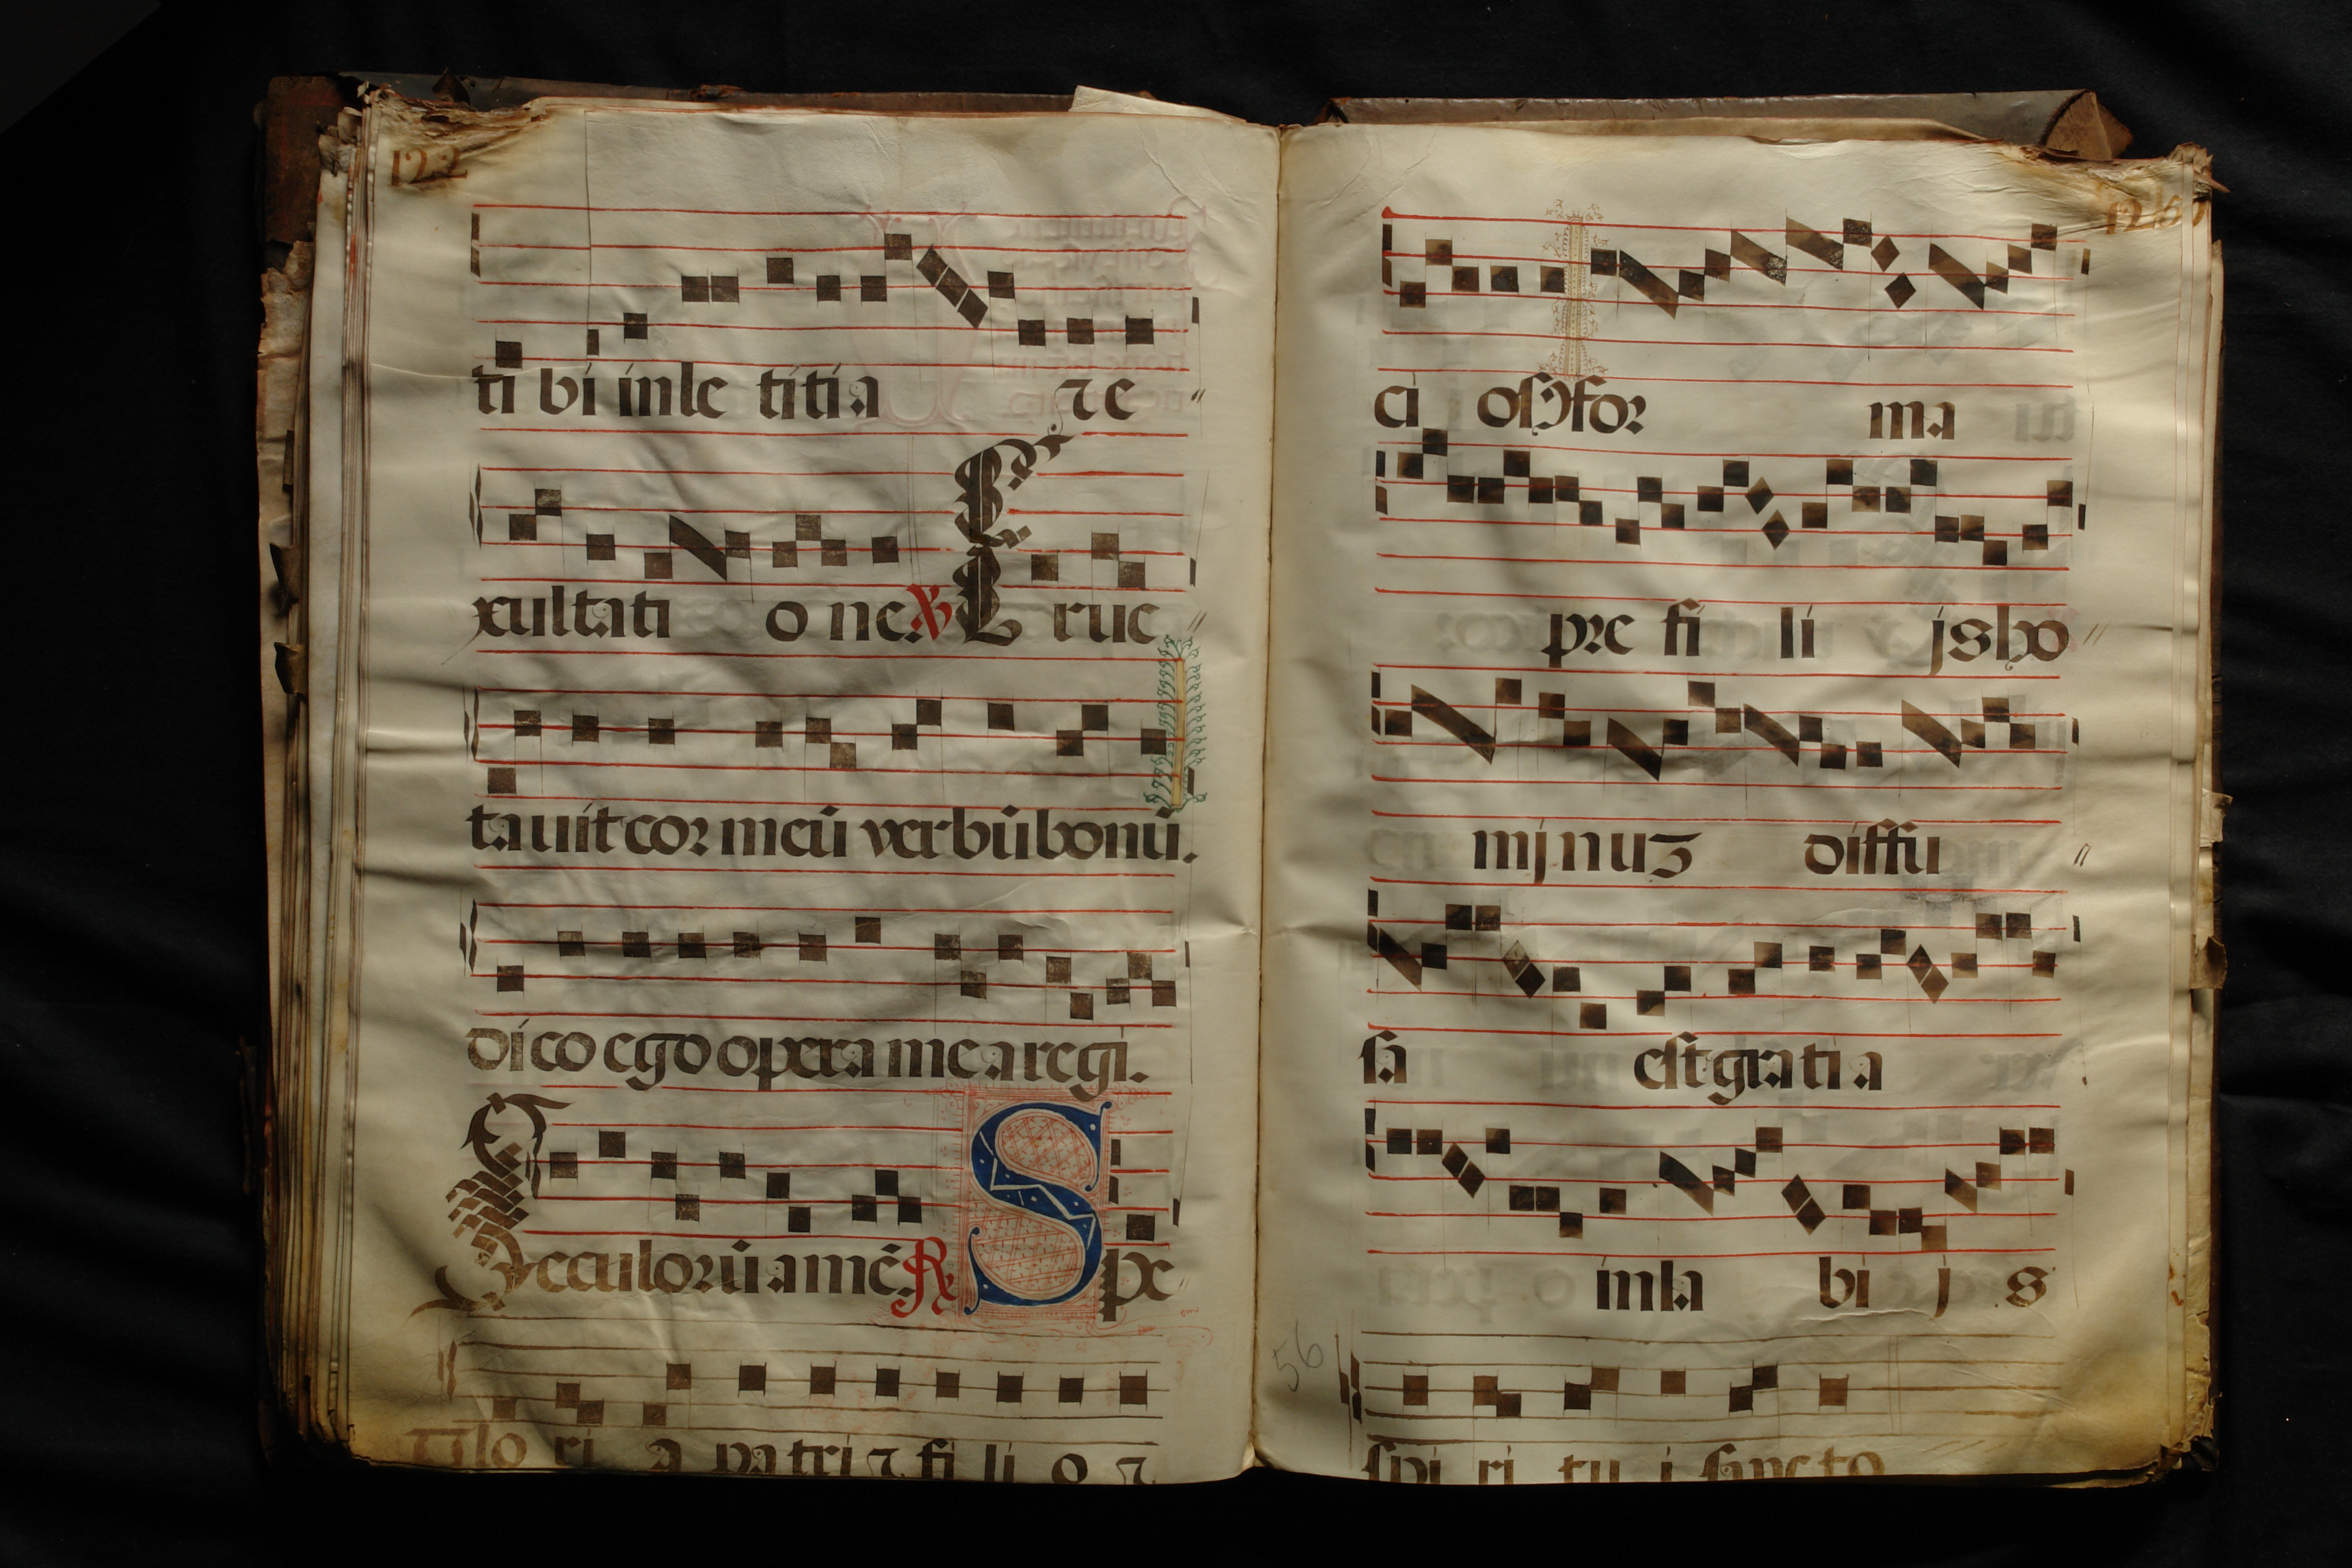 122
ti bi in le titi a ⁊ e
xultati o ne. ℣ E ruc
tauit cor meū verbū bonū.
dico ego opera mea regi.
Seculorū amē. ℟ S pe
Glo ri a patri ⁊ fi li o ⁊
126
ci osꝰ for ma
pre fi li js ho
mjnuʒ diffu
sa est gratia
in la bi j s
56
spi ri tu i sancto